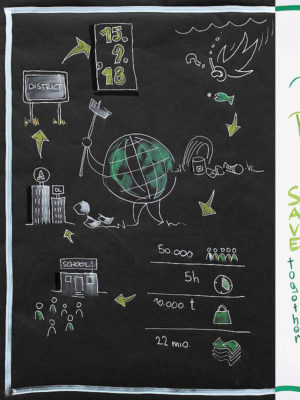 15.
9.
18
DISTRICT
A
SCHOOL!
50.000
5h
10.000 t
22 mio.
SAVE
together